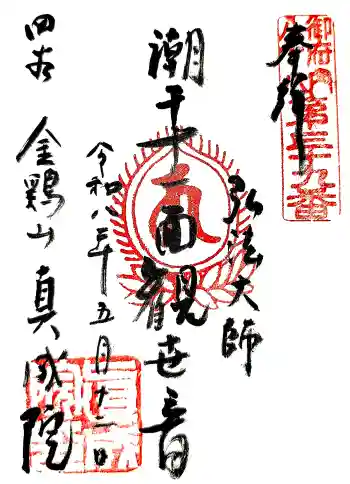 奉拝
御府内第三十九番
弘法大師
潮干十一面観世音
令和八年五月十二日
四谷 金鶏山 真成院